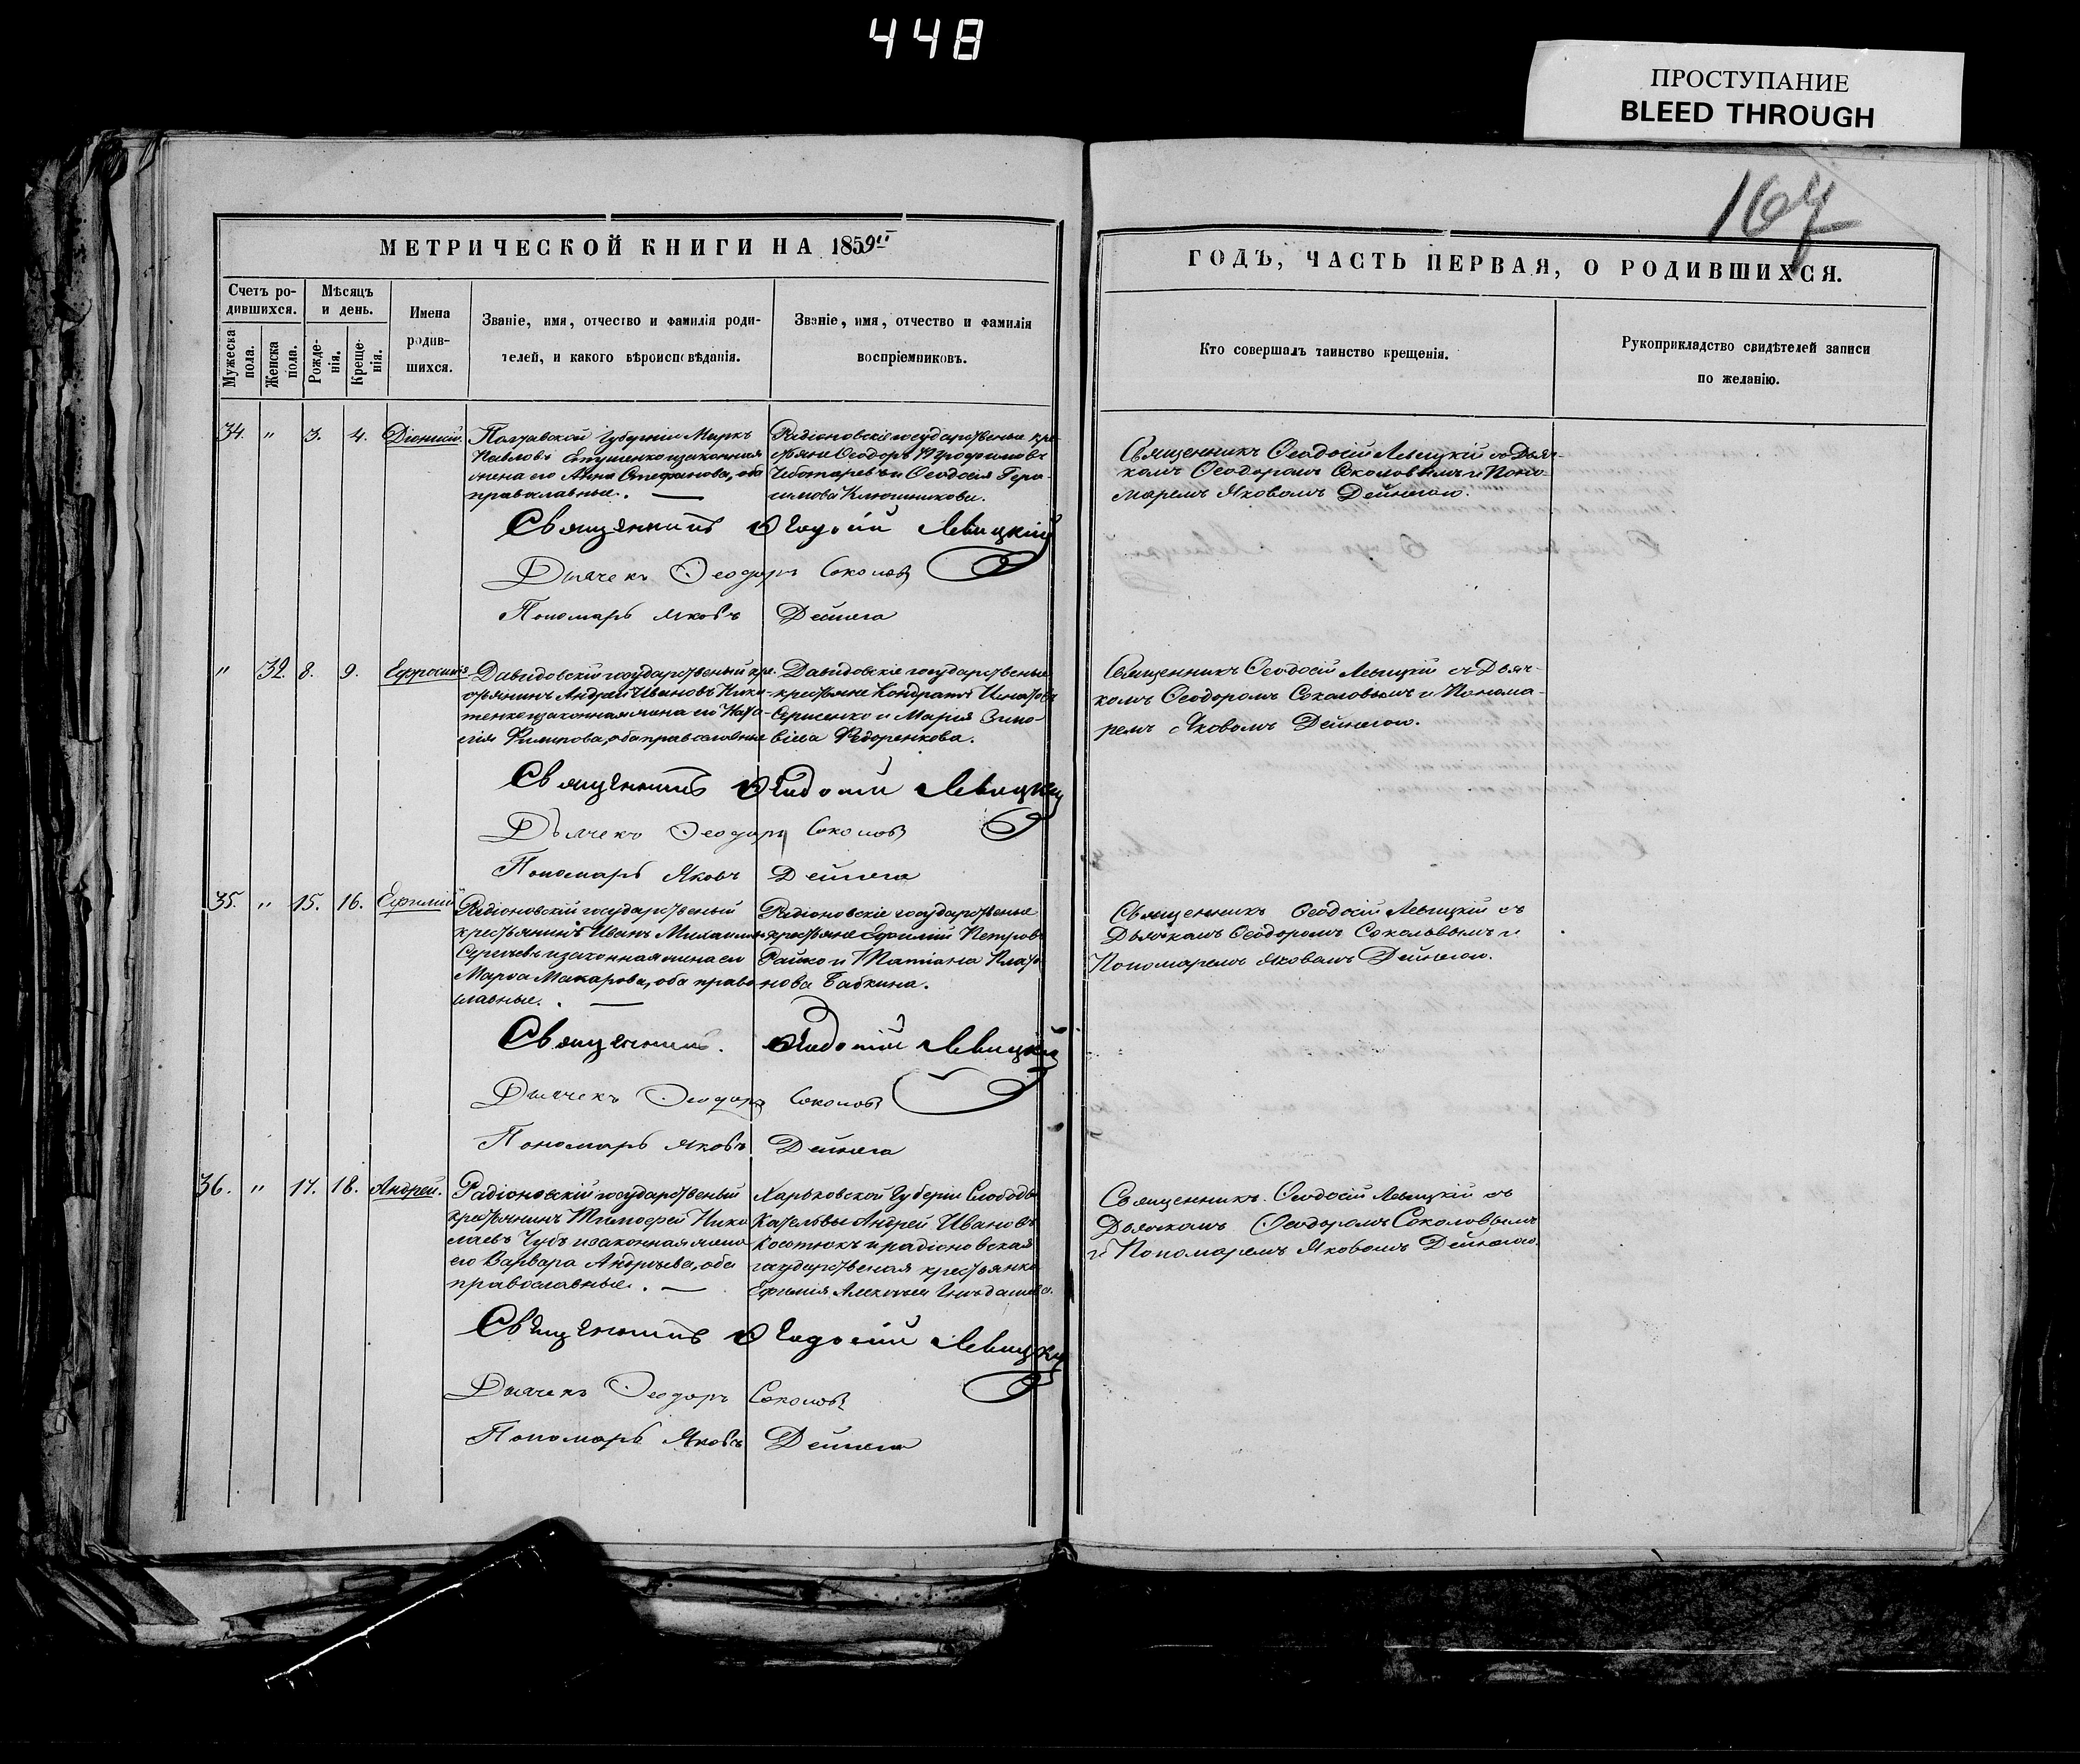 448
ПРОСТУПАНИЕ
BLEED THROUGH
167
МЕТРИЧЕСКОЙ КНИГИ НА 1859й
ГОДЪ, ЧАСТЬ ПЕРВАЯ, О РОДИВШИХСЯ.
Счетъ ро-
дившихся.
Мужеска
пола.
Женска
пола.
Мѣсяцъ
и день.
Рожде-
нія.
Креще-
нія.
Имена
родив-
шихся.
Званіе, имя, отчество и фамилія роди-
телей, и какого вѣроисповѣданія.
Званіе, имя, отчество и фамилія
воспріемниковъ.
Кто совершалъ таинство крещенія.
Рукоприкладство свидѣтелей записи
по желанію.
34. " 3. 4. Діонисій.
Полтавской губерніи Маркъ
Павловъ изаконная
жена его Анна Стефанова, оба
православные.
Радіоновскіе государственые кре-
стьяне Ѳеодоръ Трофимовъ
Чеботаревъ и Ѳеодосія Гера-
симова Ключникова.
Священникъ Ѳеодосій Левицкій съ Дьяч-
комъ Ѳеодоромъ Соколовымъ и Поно-
маремъ Яковомъ Дейнегою.
Священникъ Ѳеодосій Левицкій
Дьячекъ Ѳеодоръ Соколовъ
Пономарь Яковъ Дейнега
" 32. 8. 9. Ефросинія
Давидовскій государственый кре-
стьянинъ Андрей Ивановъ Ники-
тенко изаконная жена его Ната-
лія Филипова, оба православные
Давидовскіе государственые
крестьяне Кондратій Игнатовъ
Сергіенко и Марія Зино-
віева Федоренкова.
Священникъ Ѳеодосій Левицкій съ Дьяч-
комъ Ѳеодоромъ Соколовымъ и Понома-
ремъ Яковомъ Дейнегою.
Священникъ Ѳеодосій Левицкій
Дьячекъ Ѳеодоръ Соколовъ
Пономарь Яковъ Дейнега
35. " 15. 16. Ефимій
Радіоновскій государственый
крестьянинъ Иванъ Михаиловъ
Сергѣевъ изаконная жена его
Марѳа Макарова, оба право-
славные.
Радіоновскіе государственые
крестьяне Ефимій Петровъ
Райко и Татіана Плато-
нова Бабкина.
Священникъ Ѳеодосій Левицкій съ
Дьячкомъ Ѳеодоромъ Соколовымъ и
Пономаремъ Яковомъ Дейнегою.
Священникъ Ѳеодосій Левицкій
Дьячекъ Ѳеодоръ Соколовъ
Пономарь Яковъ Дейнега
36. " 17. 18. Андрей.
Радіоновскій государственый
крестьянинъ Тимофей Нико-
лаевъ Чубъ изаконная жена
его Варвара Андреева, оба
православные.
Харьковской Губерніи Слободы
Котельвы Андрей Ивановъ
Костюкъ и радіоновская
государственая крестьянка
Ефимія Алексѣева
Священникъ Ѳеодосій Левицкій съ
Дьячкомъ Ѳеодоромъ Соколовымъ
и Пономаремъ Яковомъ Дейнегою.
Священникъ Ѳеодосій Левицкій
Дьячекъ Ѳеодоръ Соколовъ
Пономарь Яковъ Дейнега